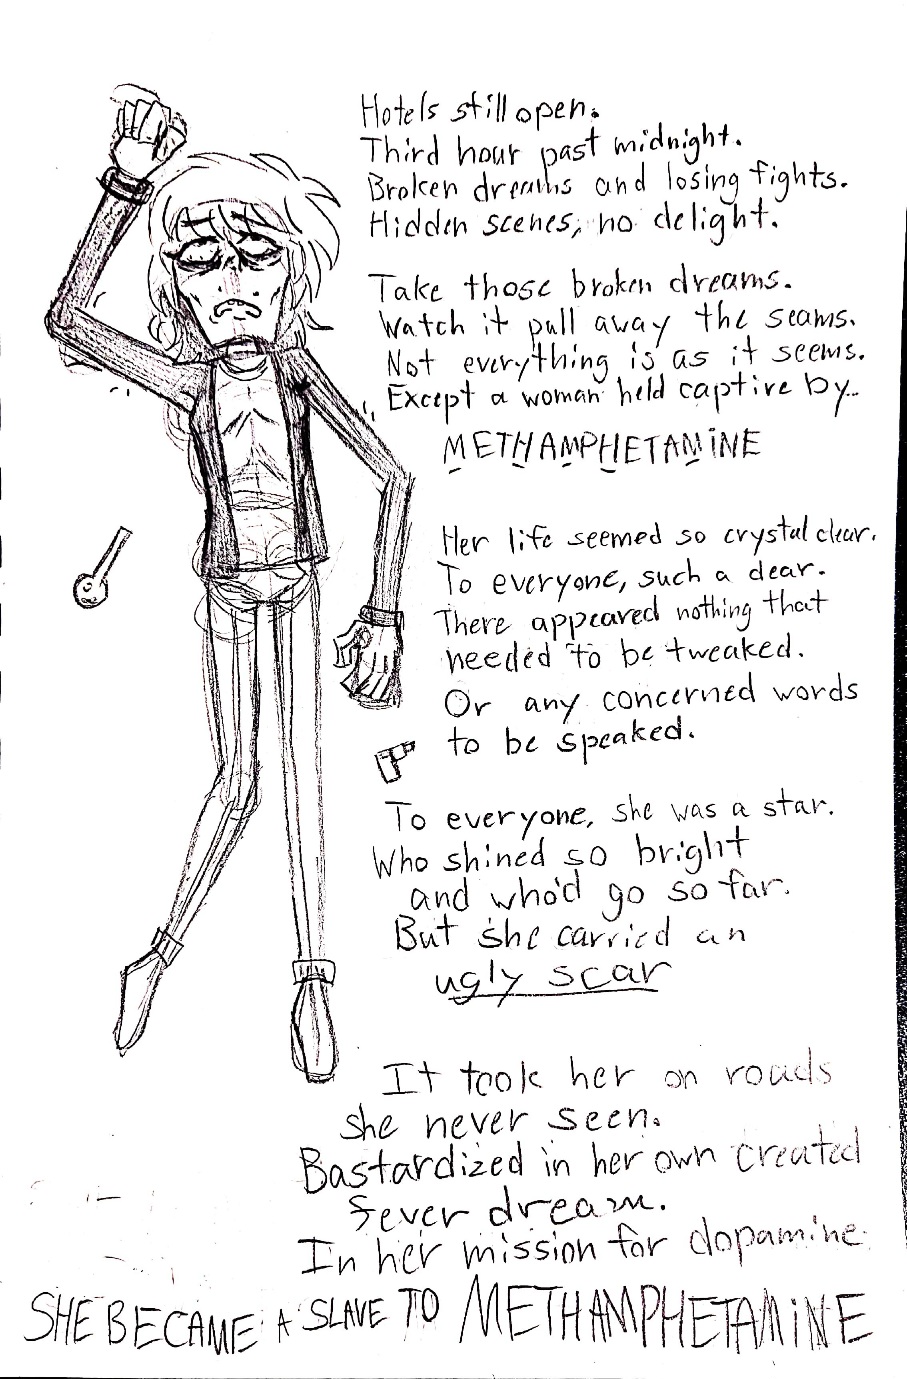 Hotels still open.
Third hour past midnight.
Broken dreams and losing fights.
Hidden scenes, no delight.
Take those broken dreams.
Watch it pull away the seams.
Not everything is as it seems.
Except a woman held captive by..
METHAMPHETAMiNE
Her life seemed so crystal clear.
To everyone, such a dear.
There appeared nothing that
needed to be tweaked.
Or any concerned words
to be speaked.
To everyone, she was a star.
Who shined so bright
and who'd go so far.
But she carried an
ugly scar
It took her on roads
she never seen.
Bastardized in her own created
fever dream.
In her mission for dopamine
SHE BECAME A SLAVE TO METHAMPHETAMiNE